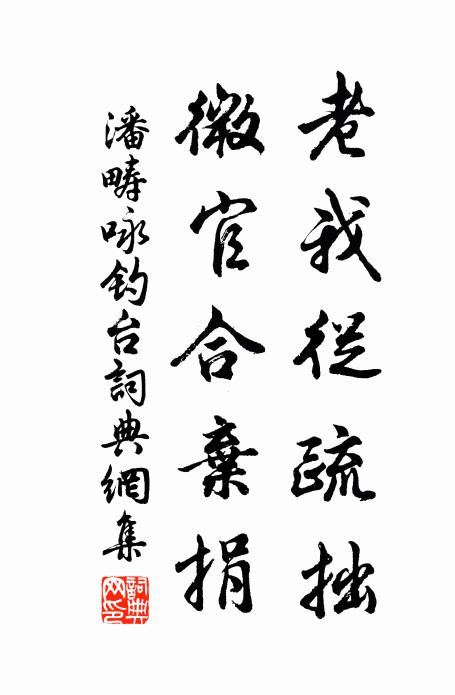 老我從疏拙
微官合棄捐
潘疇咏釣台詞典網集
詞典網印